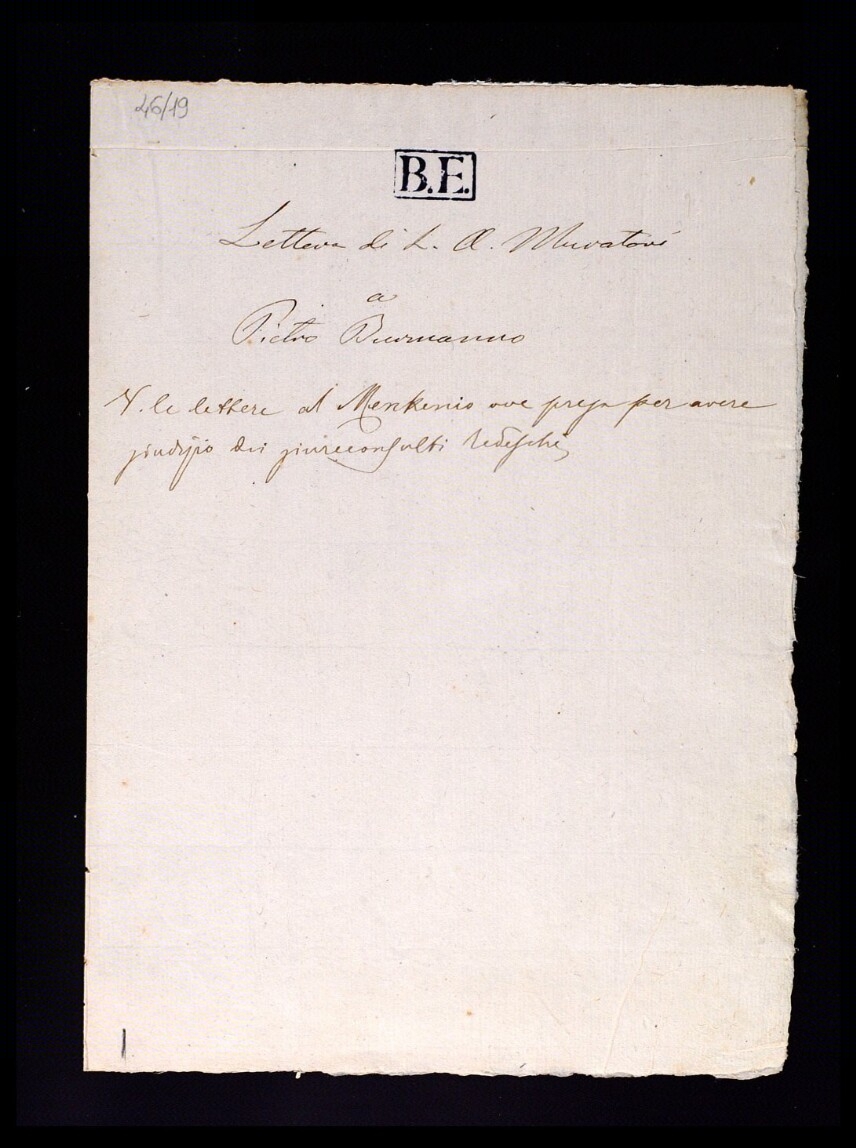 46/19
B.E.
Lettera di L. A. Muratori
a
Pietro Burmanno
V. le lettere al Menkenio ove prega per avere
giudizio dei giureconsulti Tedeschi